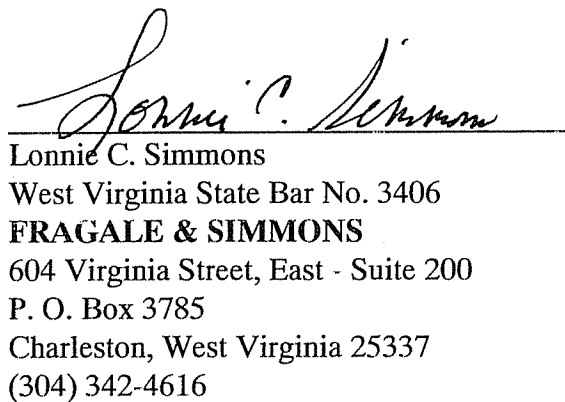 Lonnie C. Simmons
Lonnie C. Simmons
West Virginia State Bar No. 3406
FRAGALE & SIMMONS
604 Virginia Street, East - Suite 200
P. O. Box 3785
Charleston, West Virginia 25337
(304) 342-4616